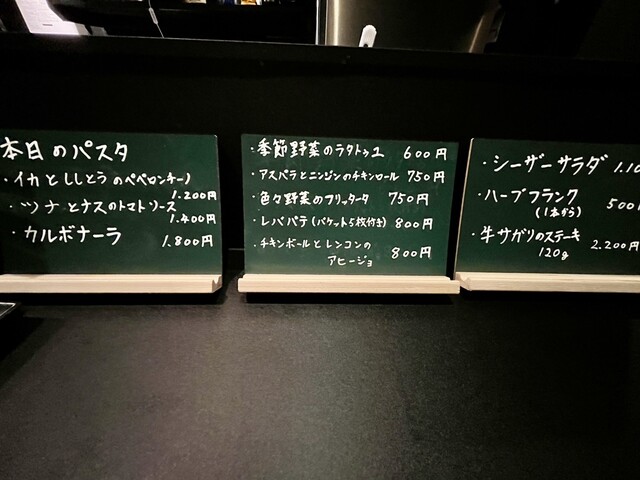 本日のパスタ
・イカとししとうのペペロンチーノ
1.200円
・ツナとナスのトマトソース
1.400円
・カルボナーラ
1.800円
・季節野菜のラタトゥユ 600円
・アスパラとニンジンのチキンロール 750円
・色々野菜のフリッタータ 750円
・レバパテ(バケット5枚付き) 800円
・チキンボールとレンコンの
アヒージョ 800円
・シーザーサラダ
・ハーブフランク 500
(1本から)
・牛サガリのステーキ 2.200円
120g